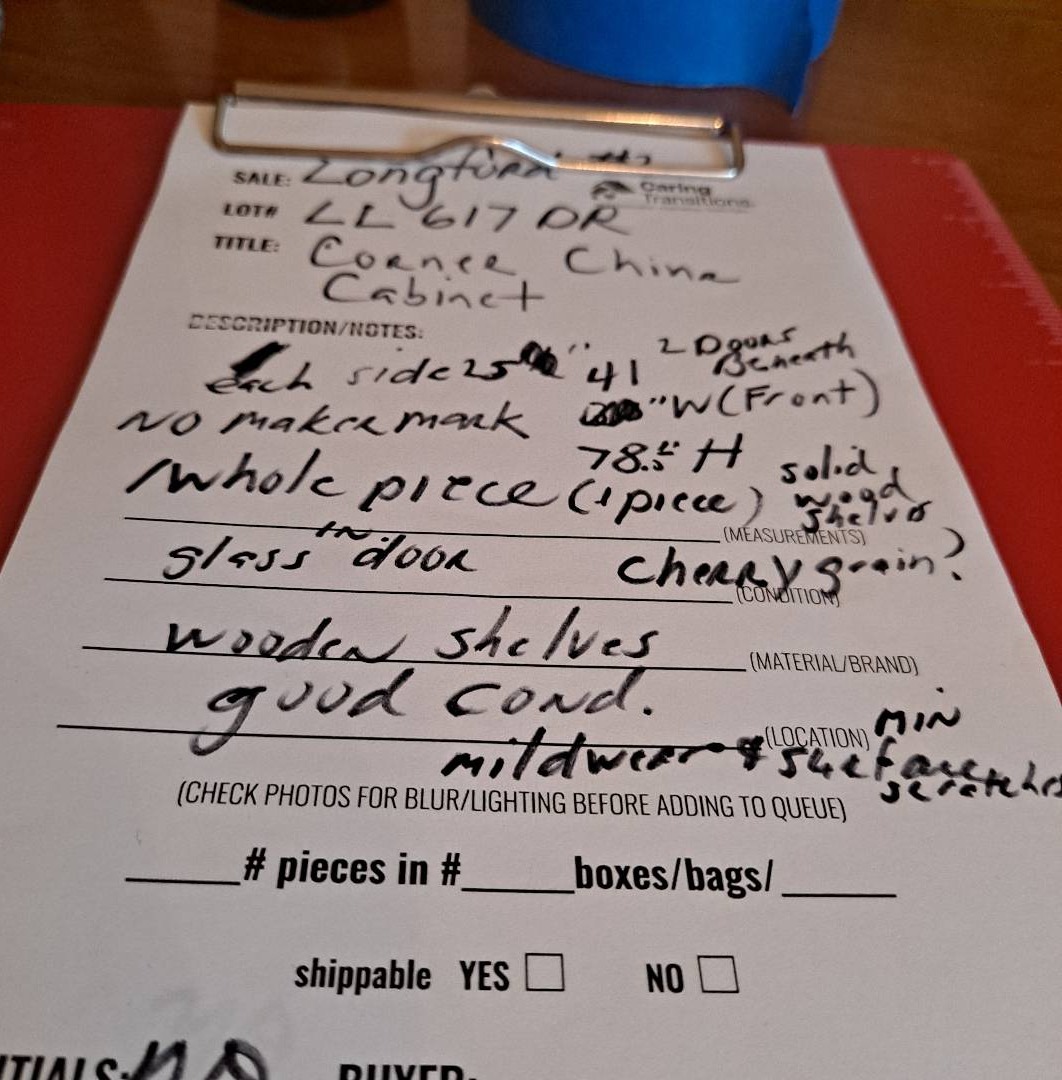 SALE: Longford
Caring Transitions
LOT# LL 617 DR
TITLE: Corner China
Cabinet
DESCRIPTION/NOTES:
2 Doors Beneath
each side 25" 41
"W (Front)
No maker mark
78.5" H
solid wood shelves
1 whole piece (1 piece)
(MEASUREMENTS)
glass in door cherry grain?
(CONDITION)
wooden shelves
(MATERIAL/BRAND)
good cond.
(LOCATION) MIN
mild wear & surface scratches
(CHECK PHOTOS FOR BLUR/LIGHTING BEFORE ADDING TO QUEUE)
# pieces in # boxes/bags/
shippable YES NO
BUYER: